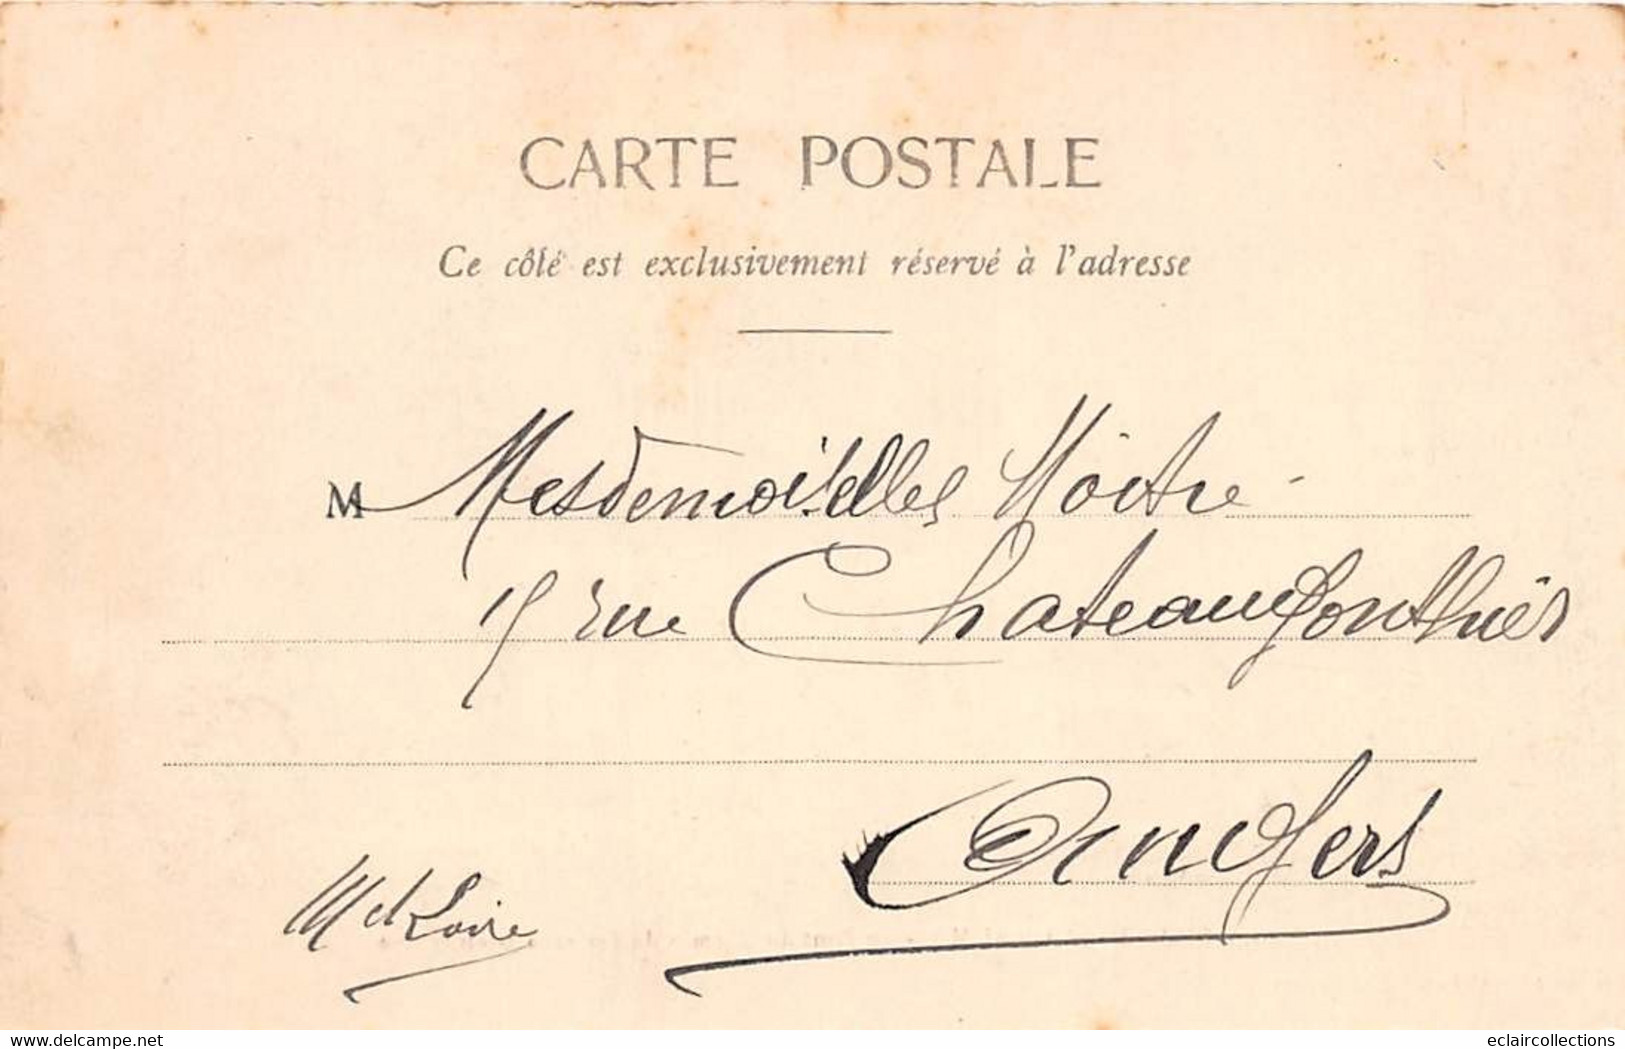 CARTE POSTALE
Ce côté est exclusivement réservé à l'adresse
M Mesdemoiselles
rue Chateaugonthier
Angers
M et Loire
www.delcampe.net
eclaircollections